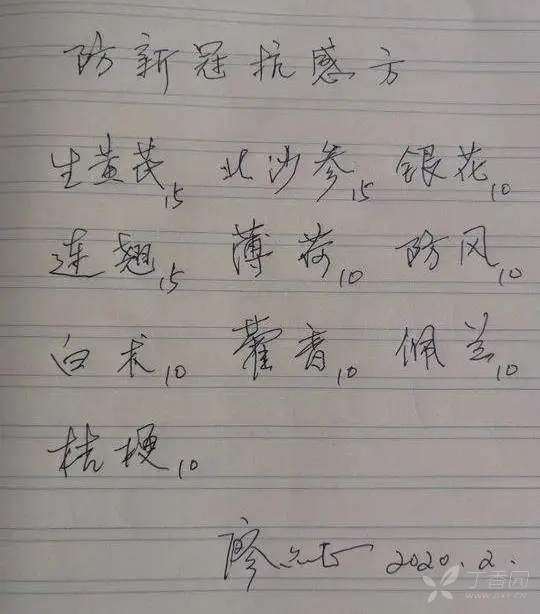 防新冠抗感方
生黄芪15 北沙参15 银花10
连翘15 薄荷10 防风10
白术10 藿香10 佩兰10
桔梗10
廖 2020.2.
丁香园
WWW.DXY.CN